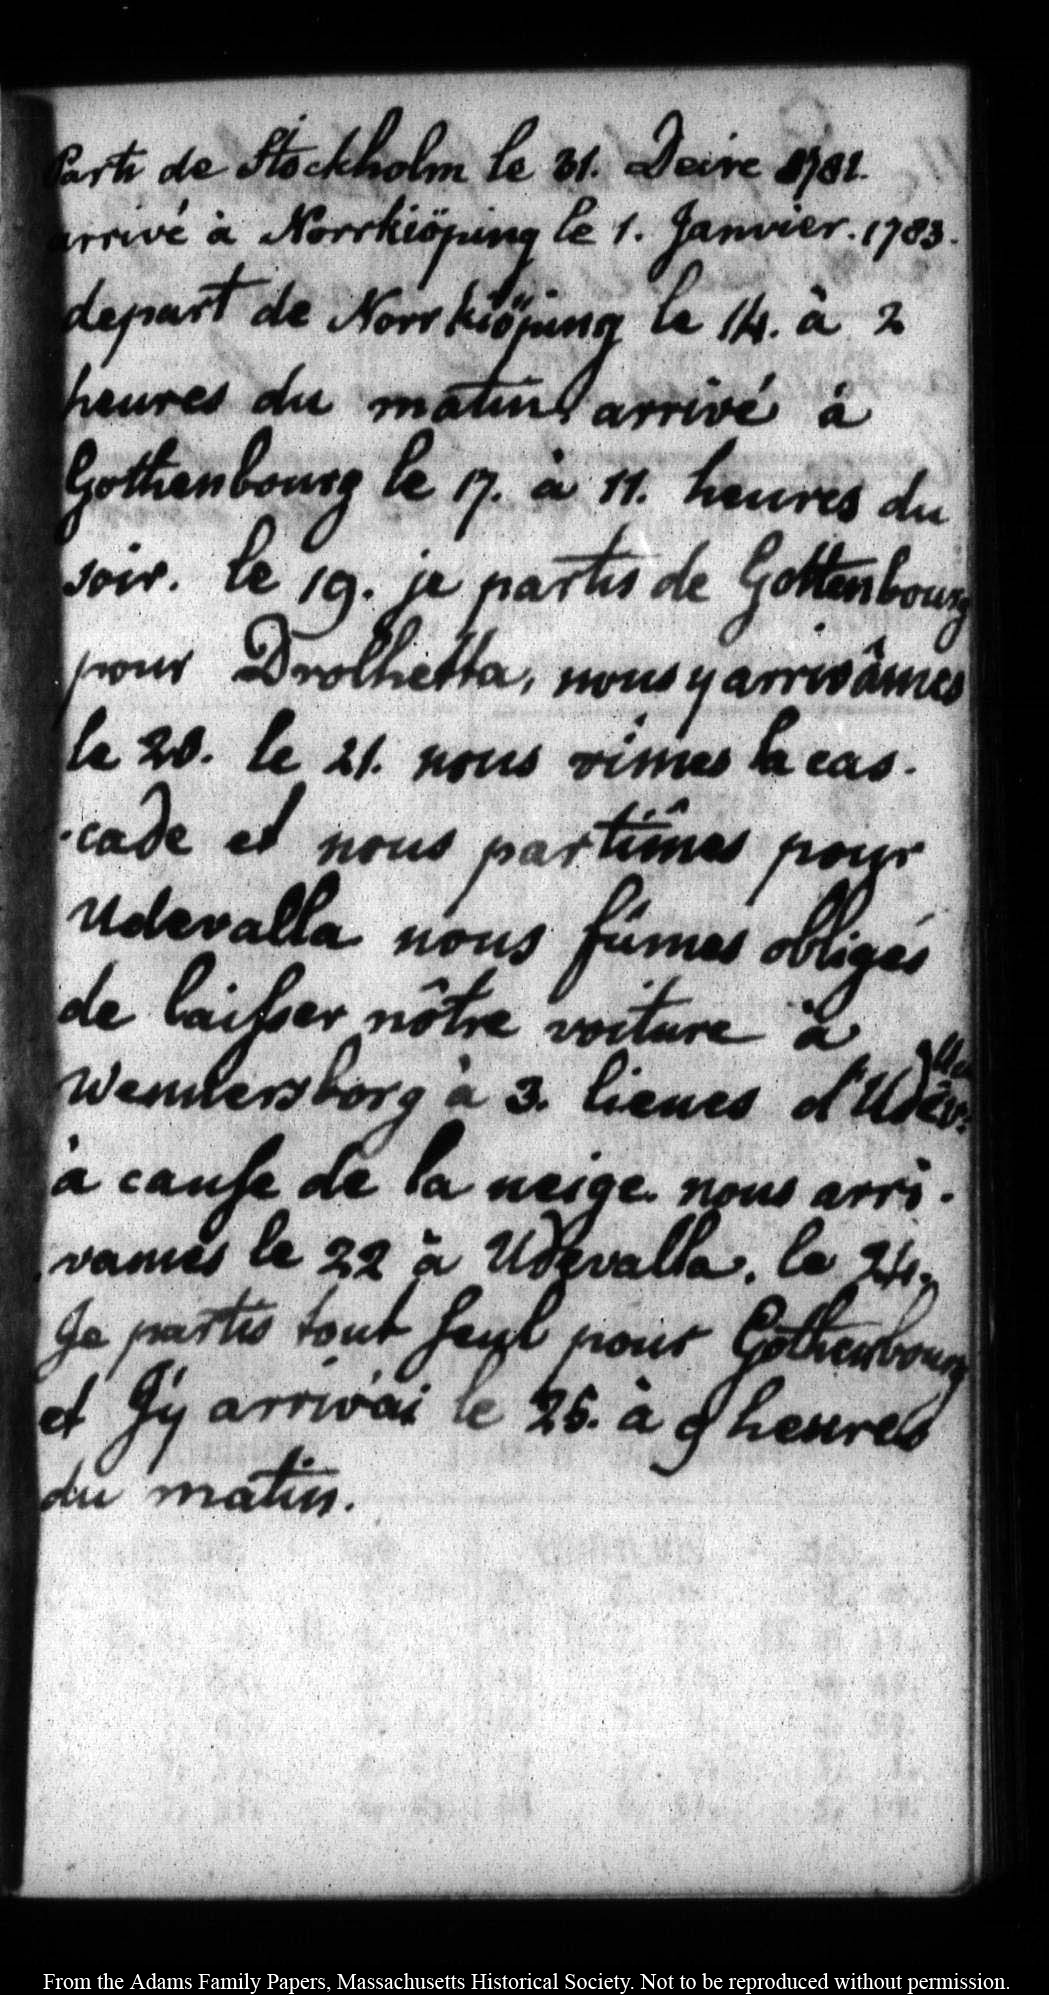 Parti de Stockholm le 31. Decire 1782.
arrivé à Norrkiöping le 1. Janvier. 1783.
depart de Norrkiöping le 14. à 2
heures du matin, arrivé à
Gothenbourg le 17. à 11. heures du
soir. le 19. je partis de Gottenbourg
pour Drolhetta, nous y arrivâmes
le 20. le 21. nous vimes la cas-
-cade et nous partîmes pour
Udevalla nous fûmes obligés
de laisser nôtre voiture à
Wennersborg à 3. lieues d'Udev:lla
à cause de la neige. nous arri-
vames le 22 à Udevalla. le 24.
Je partis tout seul pour Gothenbourg
et J'y arrivai le 25. à 9 heures
du matin.
From the Adams Family Papers, Massachusetts Historical Society. Not to be reproduced without permission.